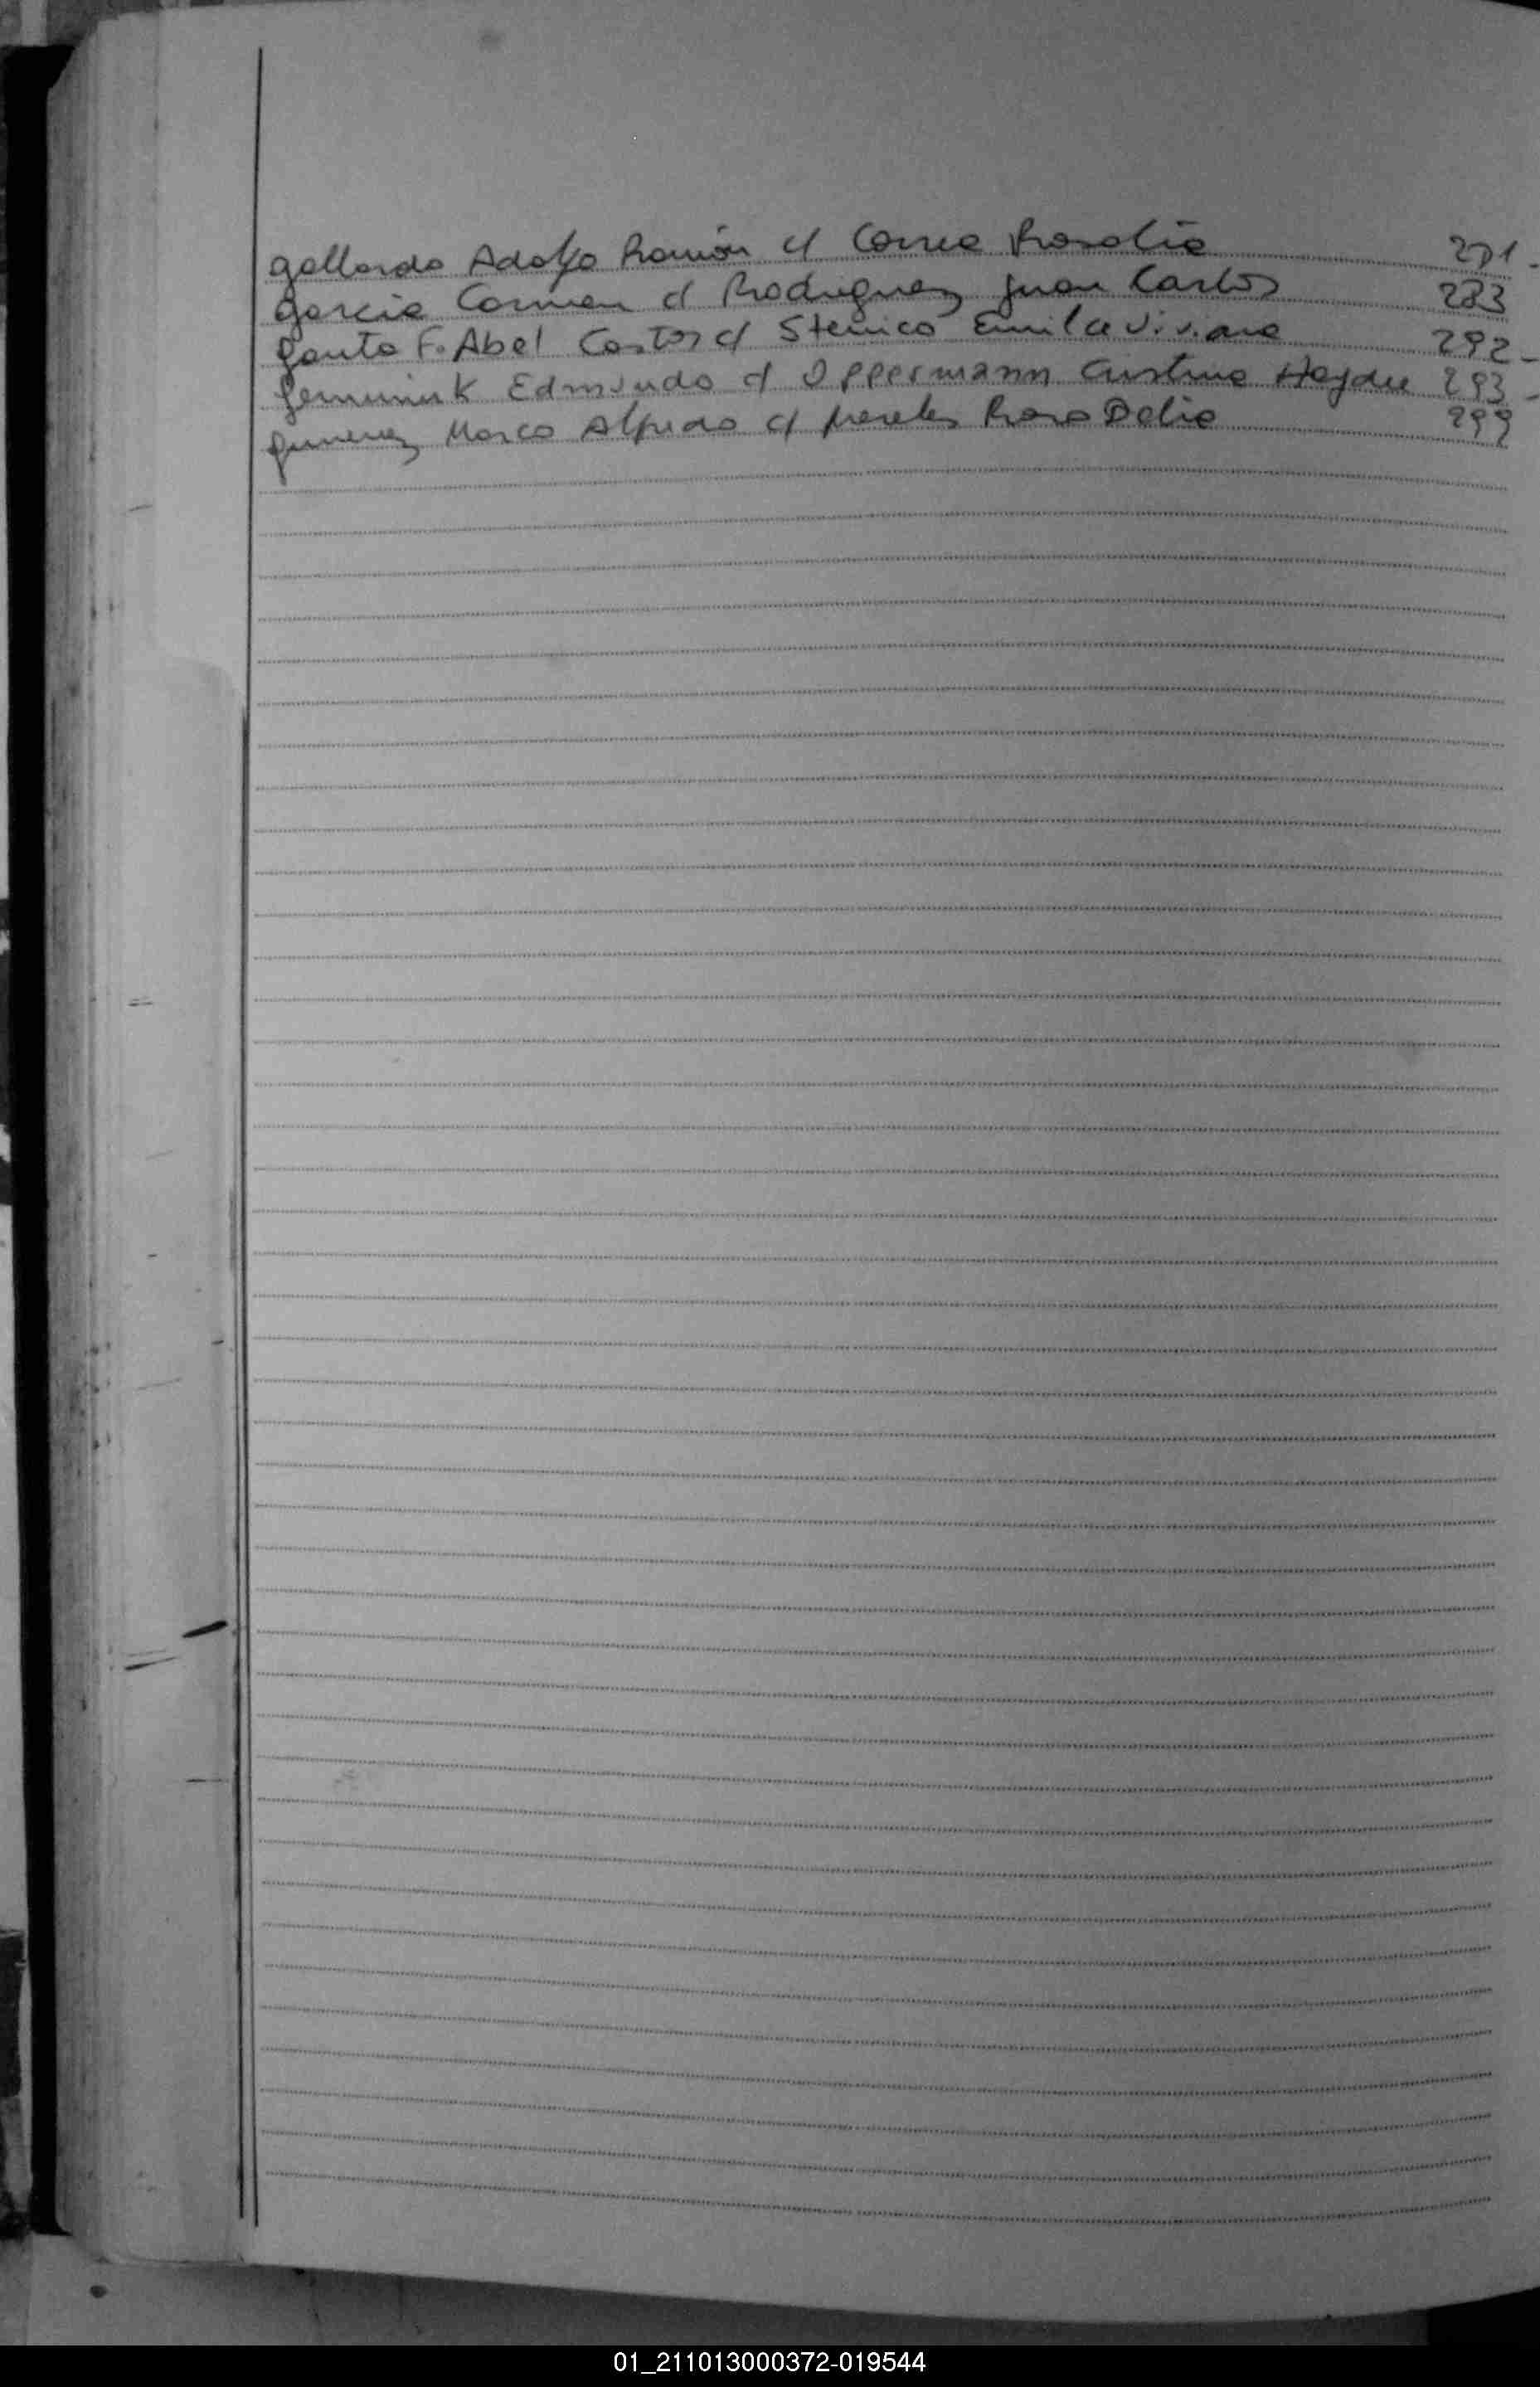 Gallardo Adolfo Ramón c/ Correa Rosalia 271-
Garcia Carmen c/ Rodriguez Juan Carlos 283
Gauto F. Abel Castor c/ Stenico Emilce Viviana 292-
Edmundo c/ Oppermann Cristina Haydee 293-
Gimenez Marco Alfredo c/ Rosa Delia 299
01_211013000372-019544